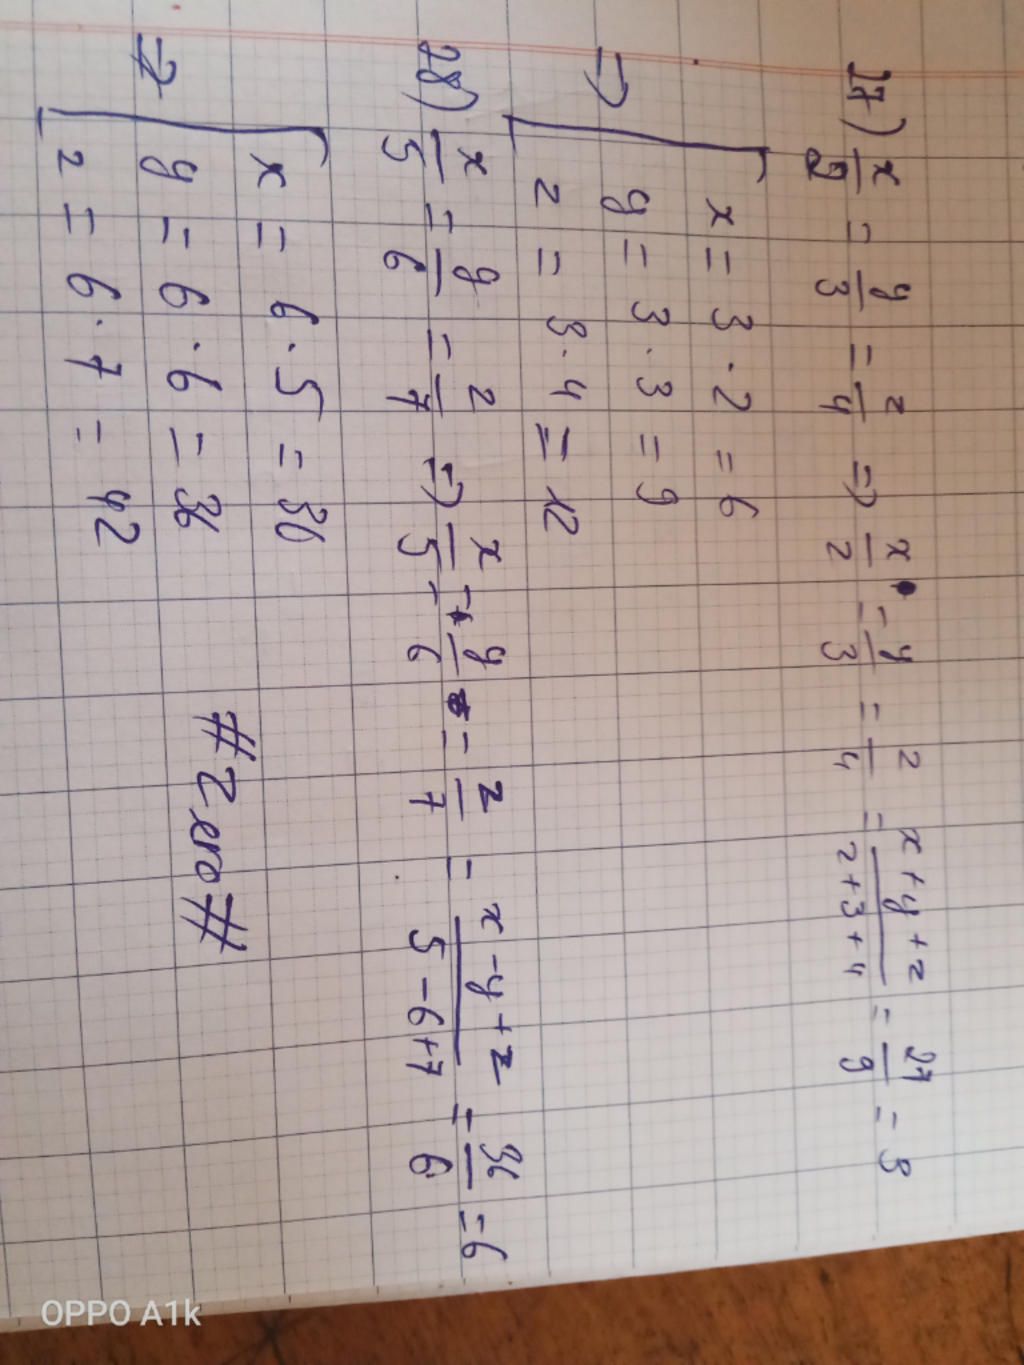 27) x/2 = y/3 = z/4 => x/2 = y/3 = z/4 = x+y+z/2+3+4 = 27/9 = 3
=> x = 3.2 = 6
y = 3.3 = 9
z = 3.4 = 12
28) x/5 = y/6 = z/7 => x/5 = y/6 = z/7 = x-y+z/5-6+7 = 36/6 = 6
=> x = 6.5 = 30
y = 6.6 = 36
z = 6.7 = 42
#Zero#
OPPO A1k